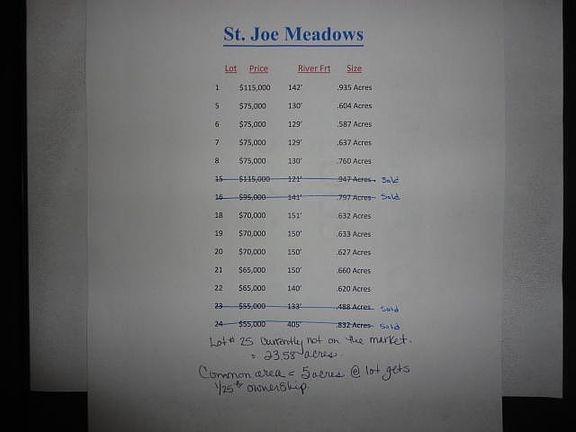 St. Joe Meadows
Lot Price River Frt Size
1 $115,000 142' .935 Acres
5 $75,000 130' .604 Acres
6 $75,000 129' .587 Acres
7 $75,000 129' .637 Acres
8 $75,000 130' .760 Acres
15 $115,000 121' .947 Acres Sold
16 $95,000 141' .797 Acres Sold
18 $70,000 151' .632 Acres
19 $70,000 150' .633 Acres
20 $70,000 150' .627 Acres
21 $65,000 150' .660 Acres
22 $65,000 140' .620 Acres
23 $55,000 133' .488 Acres Sold
24 $55,000 405' .832 Acres Sold
Lot # 25 Currently not on the market.
= 23.58 acres.
Common area = 5 acres @ lot gets
1/25th ownership.